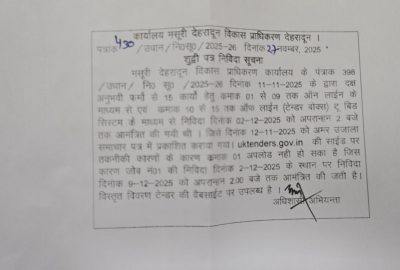 कार्यालय मसूरी देहरादून विकास प्राधिकरण देहरादून ।
पत्रांक 430 /उद्यान/नि0सू0/2025-26 दिनांक 27 नवम्बर, 2025
शुद्धी पत्र निविदा सूचना
मसूरी देहरादून विकास प्राधिकरण कार्यालय के पत्रांक 398
/उद्यान/ नि0 सू0 /2025-26 दिनांक 11-11-2025 के द्वारा दक्ष
अनुभवी फर्मो से 15 कार्यो हेतु क्रमांक 01 से 09 तक ऑन लाईन के
माध्यम से एवं क्रमांक 10 से 15 तक ऑफ लाईन (टेन्डर बोक्स) टू बिड
सिस्टम के माध्यम से निविदा दिनांक 02-12-2025 को अपरान्ह 2 बजे
तक आमन्त्रित की गयी थी । जिसे दिनांक 12-11-2025 को अमर उजाला
समाचार पत्र में प्रकाशित कराया गया। uktenders.gov.in की साईड पर
तकनीकी कारणों के कारण क्रमांक 01 अपलोड नही हो सका है जिस
कारण जोब नं01 की निविदा दिनांक 2-12-2025 के स्थान पर निविदा
दिनांक 9-12-2025 को अपरान्ह 2.00 बजे तक आमंत्रित की जाती है।
विस्तृत विवरण टेन्डर की वैबसाईट पर उपलब्ध है ।
अधिशासी अभियन्ता